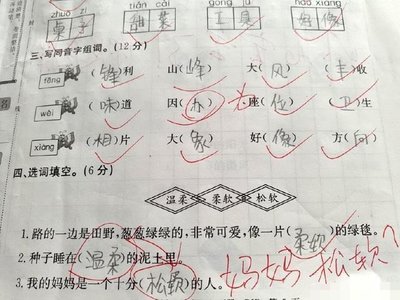 zhuō zi tián cài gōng jù hǎo xiàng
桌子 甜菜 工具 好像
三、写同音字组词。(12分)
fēng (锋)利 山(峰) 大(风) (丰)收
wèi (味)道 因(为) 座(位) (卫)生
xiàng (相)片 大(象) 好(像) 方(向)
四、选词填空。(6分)
温柔 柔软 松软
1.路的一边是田野,葱葱绿绿的,非常可爱,像一片(柔软)的绿毯。
2.种子睡在(温柔)的泥土里。
3.我的妈妈是一个十分(松软)的人。 妈妈松软?